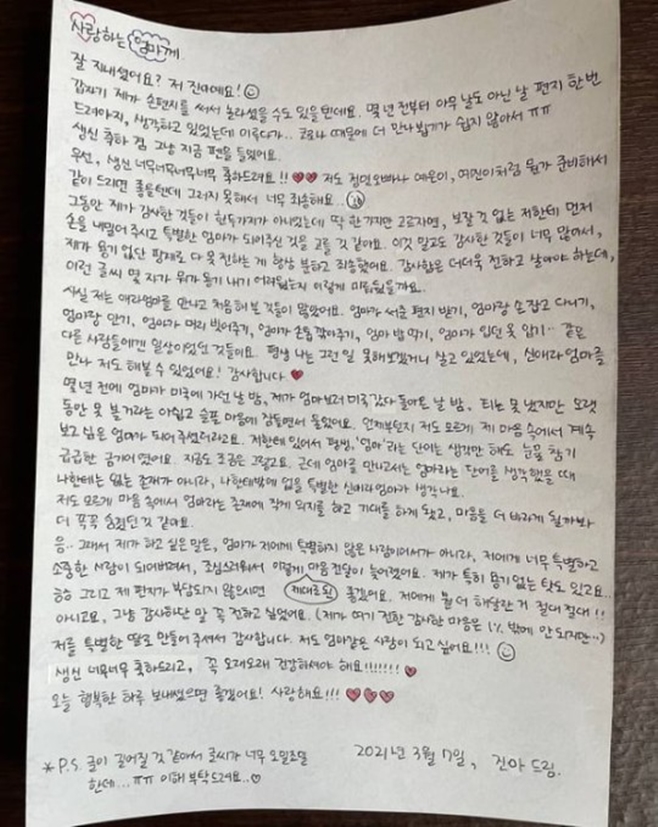 사랑하는 엄마께
잘 지내셨어요? 저 진아예요!
갑자기 제가 손편지를 써서 놀라셨을 수도 있을텐데요. 몇 년 전부터 아무 날도 아닌 날 편지 한 번
드려야지, 생각하고 있었는데 이루다가.. 코로나 때문에 더 만나뵙기가 쉽지 않아서 ㅠㅠ
생신 축하 겸 그냥 지금 펜을 들었어요.
우선, 생신 너무너무너무너무 축하드려요!! ♥♥ 저도 정민오빠나 예은이, 예진이처럼 뭔가 준비해서
같이 드리면 좋을텐데 그러지 못해서 너무 죄송해요..
그동안 제가 감사한 것들이 한두가지가 아니었는데 딱 한 가지만 고르자면, 보잘 것 없는 저한테 먼저
손을 내밀어 주시고 특별한 엄마가 되어주신 것을 고를 것 같아요. 이것 말고도 감사한 것들이 너무 많아서,
제가 용기 없단 핑계로 다 못 전하는 게 항상 분하고 죄송했어요. 감사함은 더더욱 전하고 살아야 하는데,
이런 글씨 몇 자가 뭐가 용기 내기 어려웠는지 이렇게 미뤄뒀을까요..
사실 저는 애라엄마를 만나고 처음 해 본 것들이 많았어요. 엄마가 써준 편지 받기, 엄마랑 손 잡고 다니기,
엄마랑 안기, 엄마가 머리 빗어주기, 엄마가 손톱 깎아주기, 엄마 밥 먹기, 엄마가 입던 옷 입기.. 같은
다른 사람들에겐 일상이었던 것들이요. 평생 나는 그런 일 못해보겠거니 살고 있었는데, 신애라엄마를
만나 저도 해볼 수 있었어요! 감사합니다 ♥
몇 년 전에 엄마가 미국에 가셨던 날 밤, 제가 엄마보러 미국갔다 돌아온 날 밤, 티는 못 냈지만 오랫
동안 못 볼거라는 아쉽고 슬픈 마음에 잠들면서 울었어요. 언제부턴지 저도 모르게 제 마음 속에서 계속
보고 싶은 엄마가 되어 주셨더라고요. 저한테 있어서 평생, '엄마'라는 단어는 생각만 해도 눈물 참기
급급한 금기어였어요. 지금도 조금은 그렇고요. 근데 엄마를 만나고서는 엄마라는 단어를 생각했을 때
나한테는 없는 존재가 아니라, 나한테밖에 없을 특별한 신애라엄마가 생각나요.
저도 모르게 마음 속에서 엄마라는 존재에 작게 의지를 하고 기대를 하게 됐고, 마음을 더 바라게 될까봐
더 꼭꼭 숨겼던 것 같아요.
음.. 그래서 제가 하고 싶은 말은, 엄마가 저에게 특별하지 않은 사람이어서가 아니라, 저에게 너무 특별하고
소중한 사람이 되어버려서, 조심스러워서 이렇게 마음 전달이 늦어졌어요. 제가 특히 용기 없는 탓도 있고요..
흠흠 그리고 제 편지가 부담되지 않으시면 제대로 된 좋겠어요. 저에게 뭘 더 해달란 거 절대 절대 !!
아니고요, 그냥 감사하단 말 꼭 전하고 싶었어요. (제가 여기 전한 감사한 마음은 1% 밖에 안 되지만~)
저를 특별한 딸로 만들어 주셔서 감사합니다. 저도 엄마같은 사람이 되고 싶어요!!!
생신 너무너무 축하드리고, 꼭 오래오래 건강하셔야 해요!!!!!!! ♥
오늘 행복한 하루 보내셨으면 좋겠어요! 사랑해요!!! ♥♥♥
2021년 3월 7일, 진아 드림.
* P.S. 글이 길어질 것 같아서 글씨가 너무 오밀조밀
한데... ㅠㅠ 이해 부탁드려요..♡